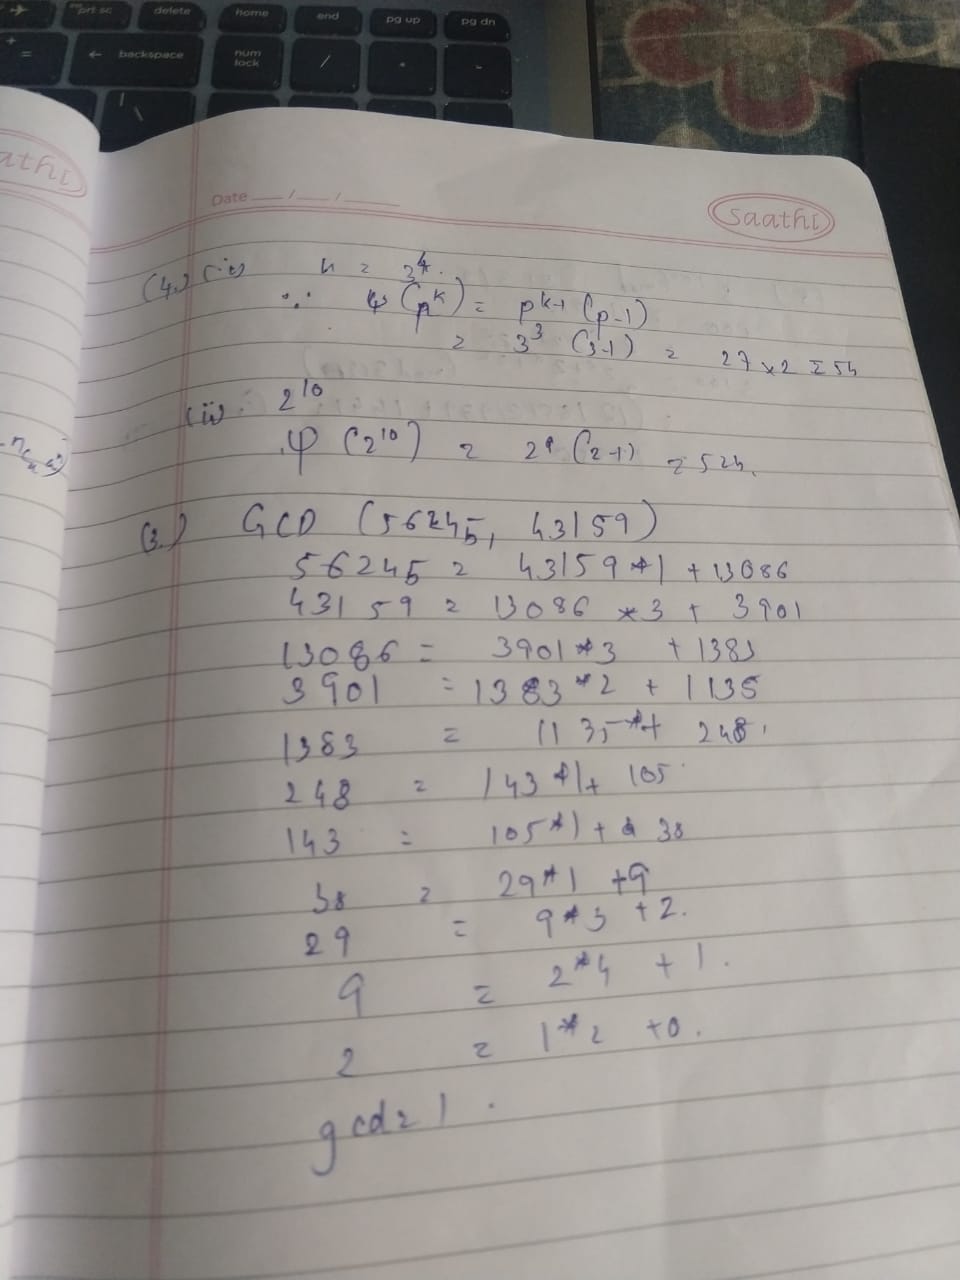 prt sc
delete
home
end
pg up
pg dn
backspace
num lock
athi
Date
Saathi
(4.) (i) n = 3^4.
∵ φ(p^k) = p^k-1 (p-1)
= 3^3 (3-1) = 27 x 2 = 54
(ii) 2^10
φ (2^10) = 2^9 (2-1) = 524.
(3.) GCD (56245, 43159)
56245 = 43159 * 1 + 13086
43159 = 13086 * 3 + 3901
13086 = 3901 * 3 + 1383
3901 = 1383 * 2 + 1135
1383 = 1135 * + 248.
248 = 143 * 1 + 105
143 = 105 * 1 + 38
38 = 29 * 1 + 9
29 = 9 * 3 + 2.
9 = 2 * 4 + 1.
2 = 1 * 2 + 0.
gcd = 1.